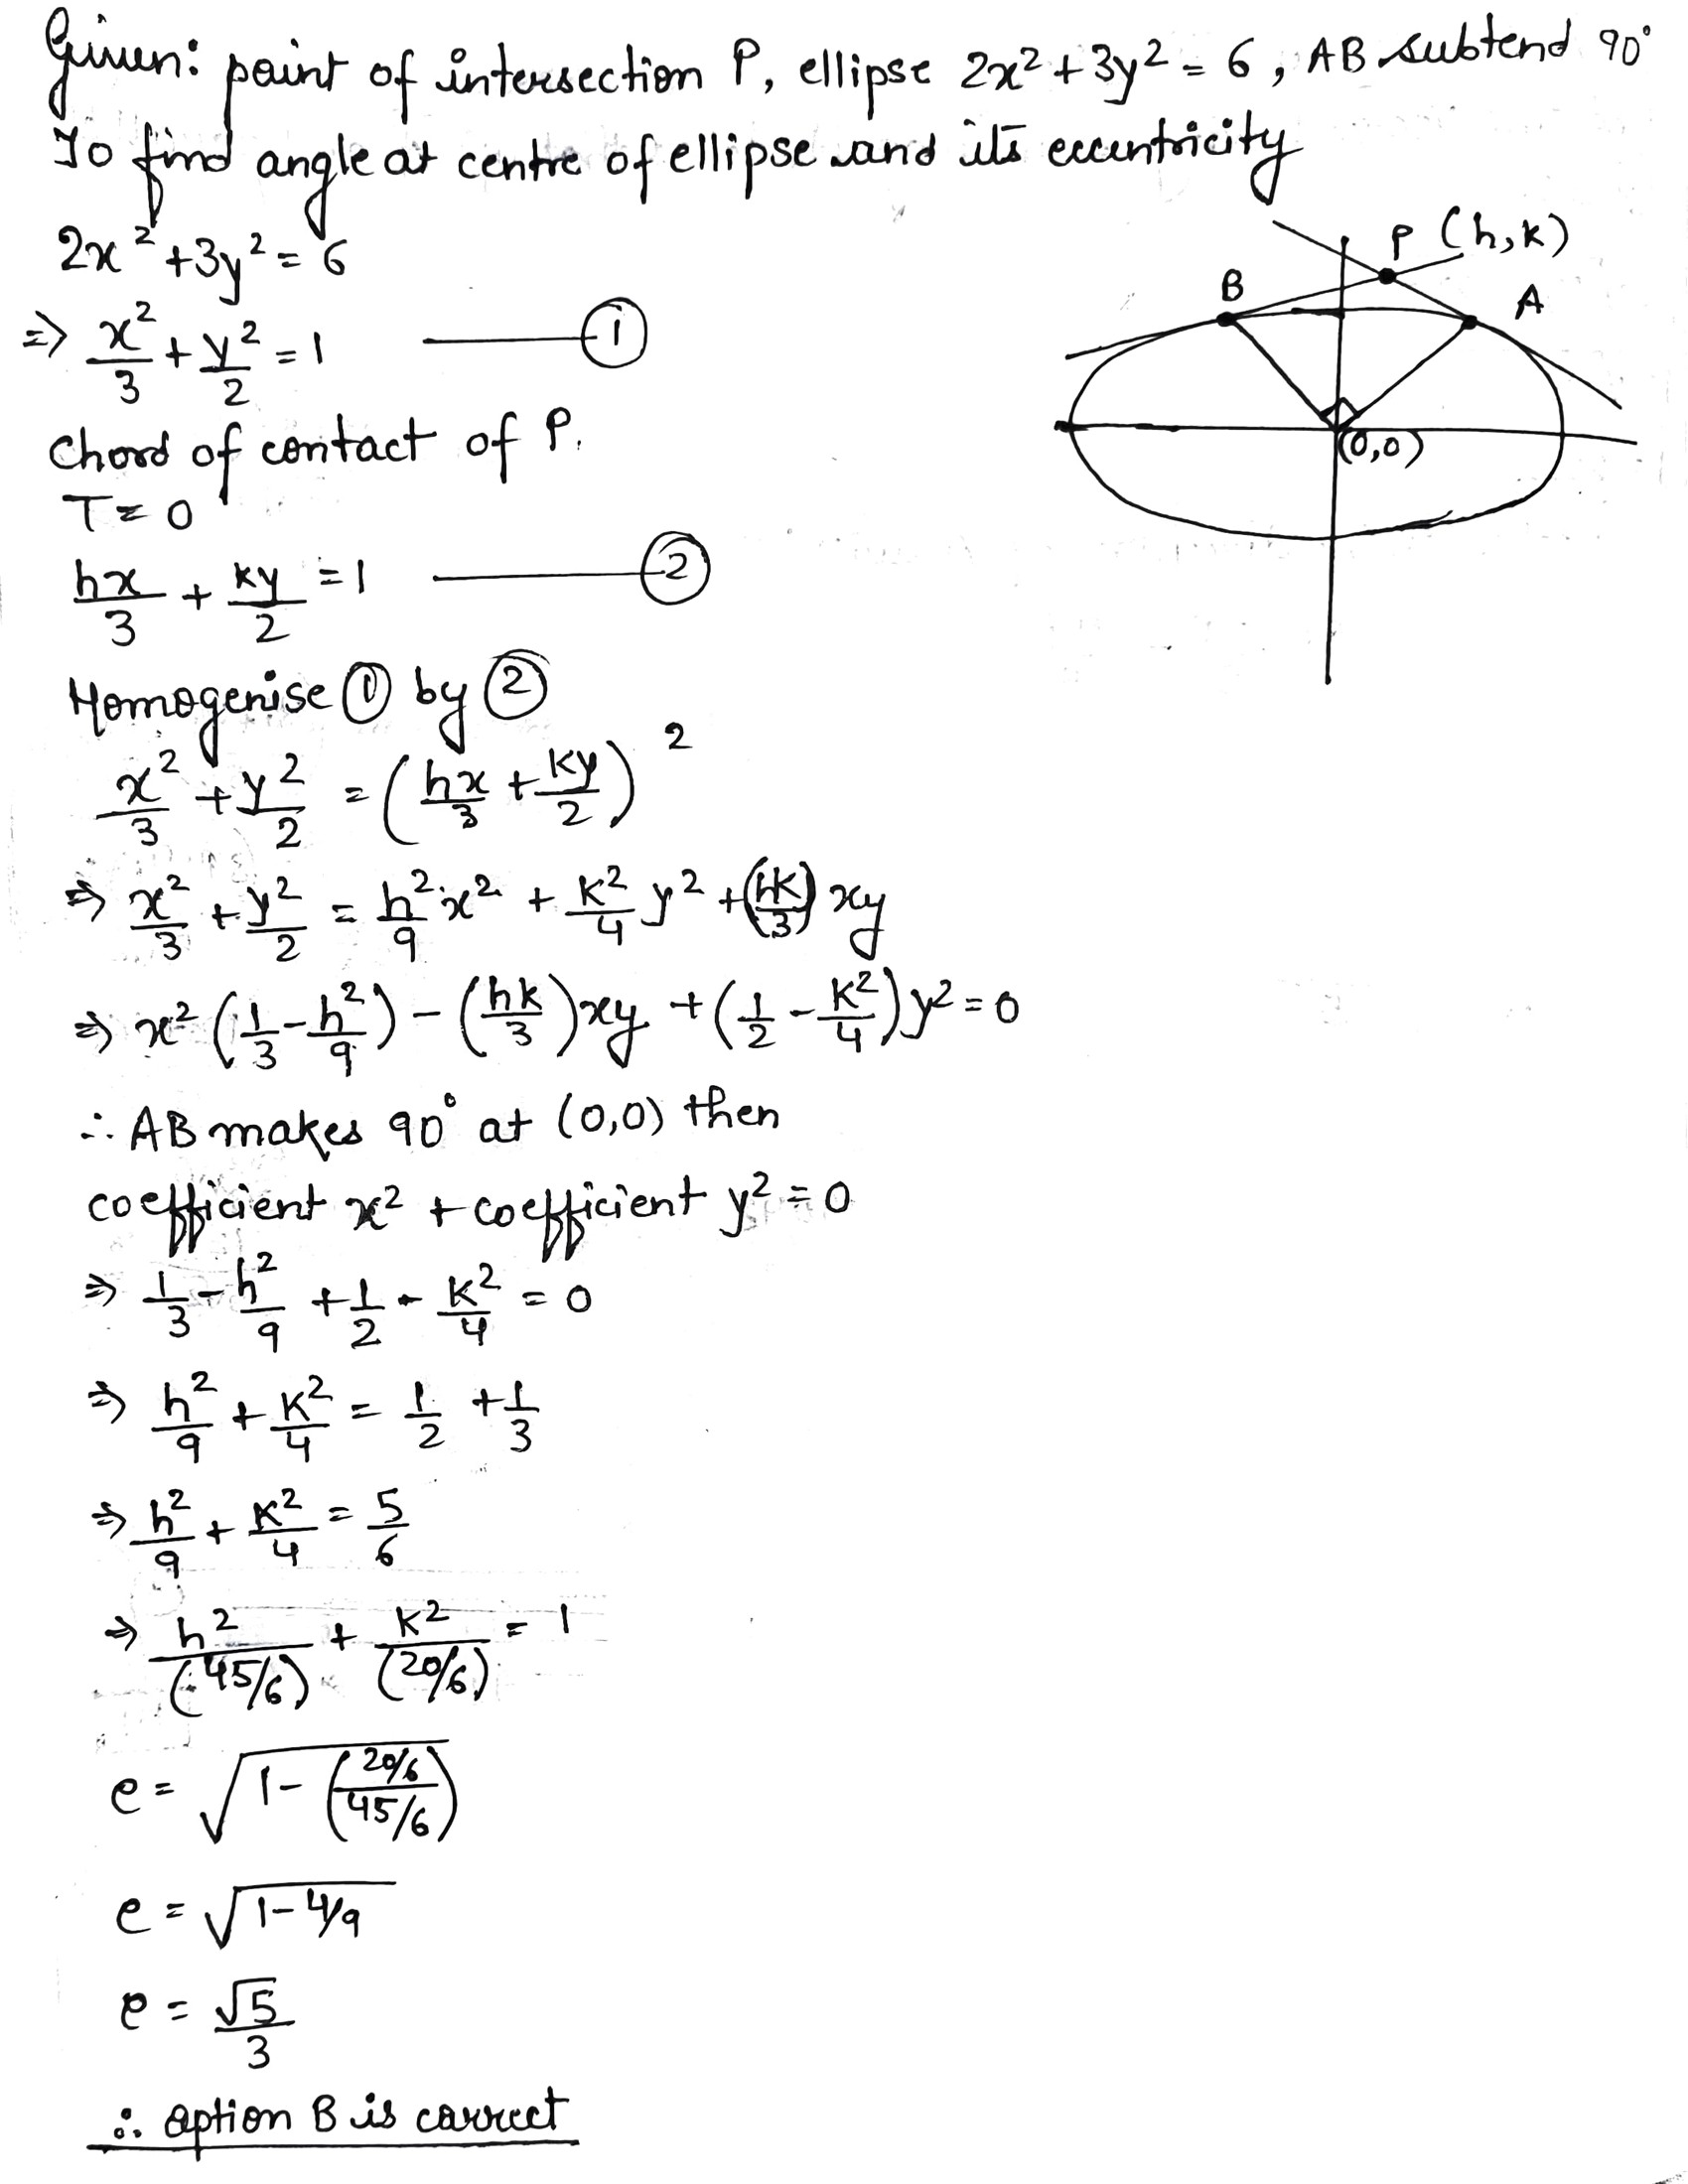 Given: point of intersection P, ellipse 2x² + 3y² = 6, AB subtend 90°
To find angle at centre of ellipse and its eccentricity
2x² + 3y² = 6
⇒ x²/3 + y²/2 = 1 ——— ①
P (h,k)
B
A
(0,0)
Chord of contact of P.
T = 0
hx/3 + ky/2 = 1 ——— ②
Homogenise ① by ②
x²/3 + y²/2 = (hx/3 + ky/2)²
⇒ x²/3 + y²/2 = h²/9 x² + k²/4 y² + (hk/3) xy
⇒ x² (1/3 - h²/9) - (hk/3) xy + (1/2 - k²/4) y² = 0
∴ AB makes 90° at (0,0) then
coefficient x² + coefficient y² = 0
⇒ 1/3 - h²/9 + 1/2 - k²/4 = 0
⇒ h²/9 + k²/4 = 1/2 + 1/3
⇒ h²/9 + k²/4 = 5/6
⇒ h²/(45/6) + k²/(20/6) = 1
e = √(1 - (20/6 / 45/6))
e = √(1 - 4/9)
e = √5/3
∴ option B is correct